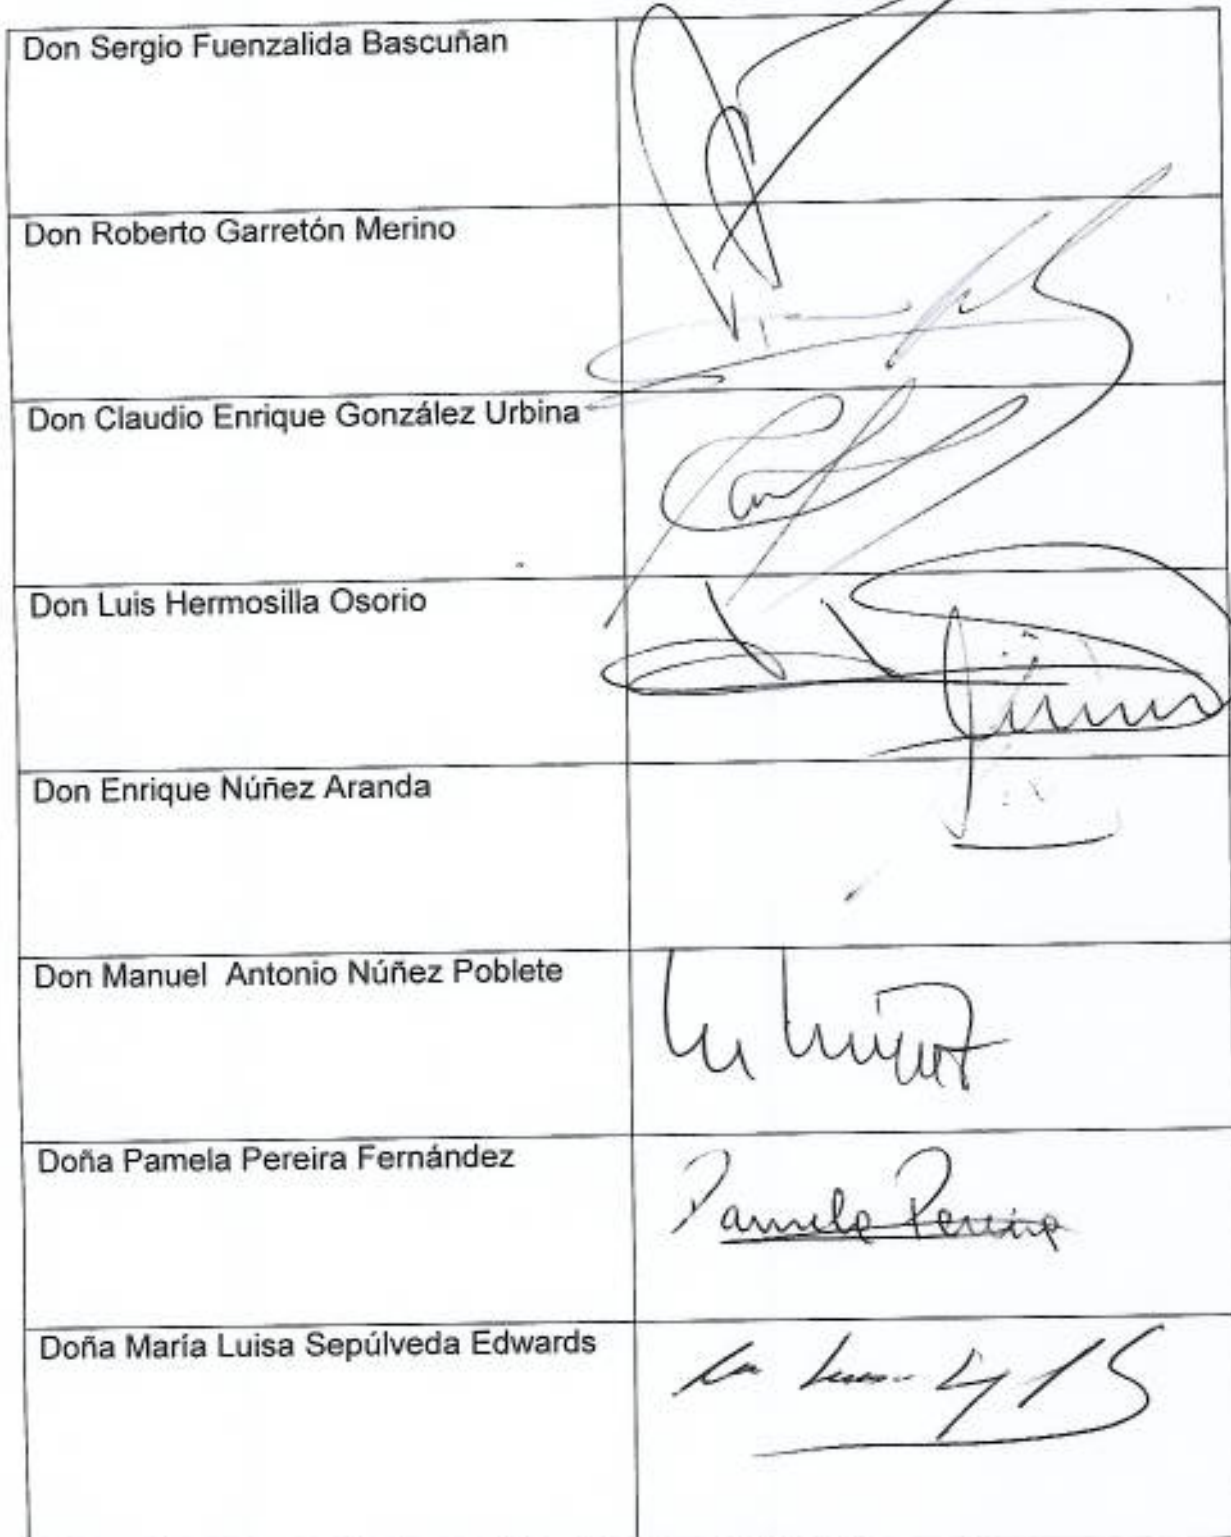 Don Sergio Fuenzalida Bascuñan
Don Roberto Garretón Merino
Don Claudio Enrique González Urbina
Don Luis Hermosilla Osorio
Don Enrique Núñez Aranda
Don Manuel Antonio Núñez Poblete
Doña Pamela Pereira Fernández
Pamela Pereira
Doña María Luisa Sepúlveda Edwards